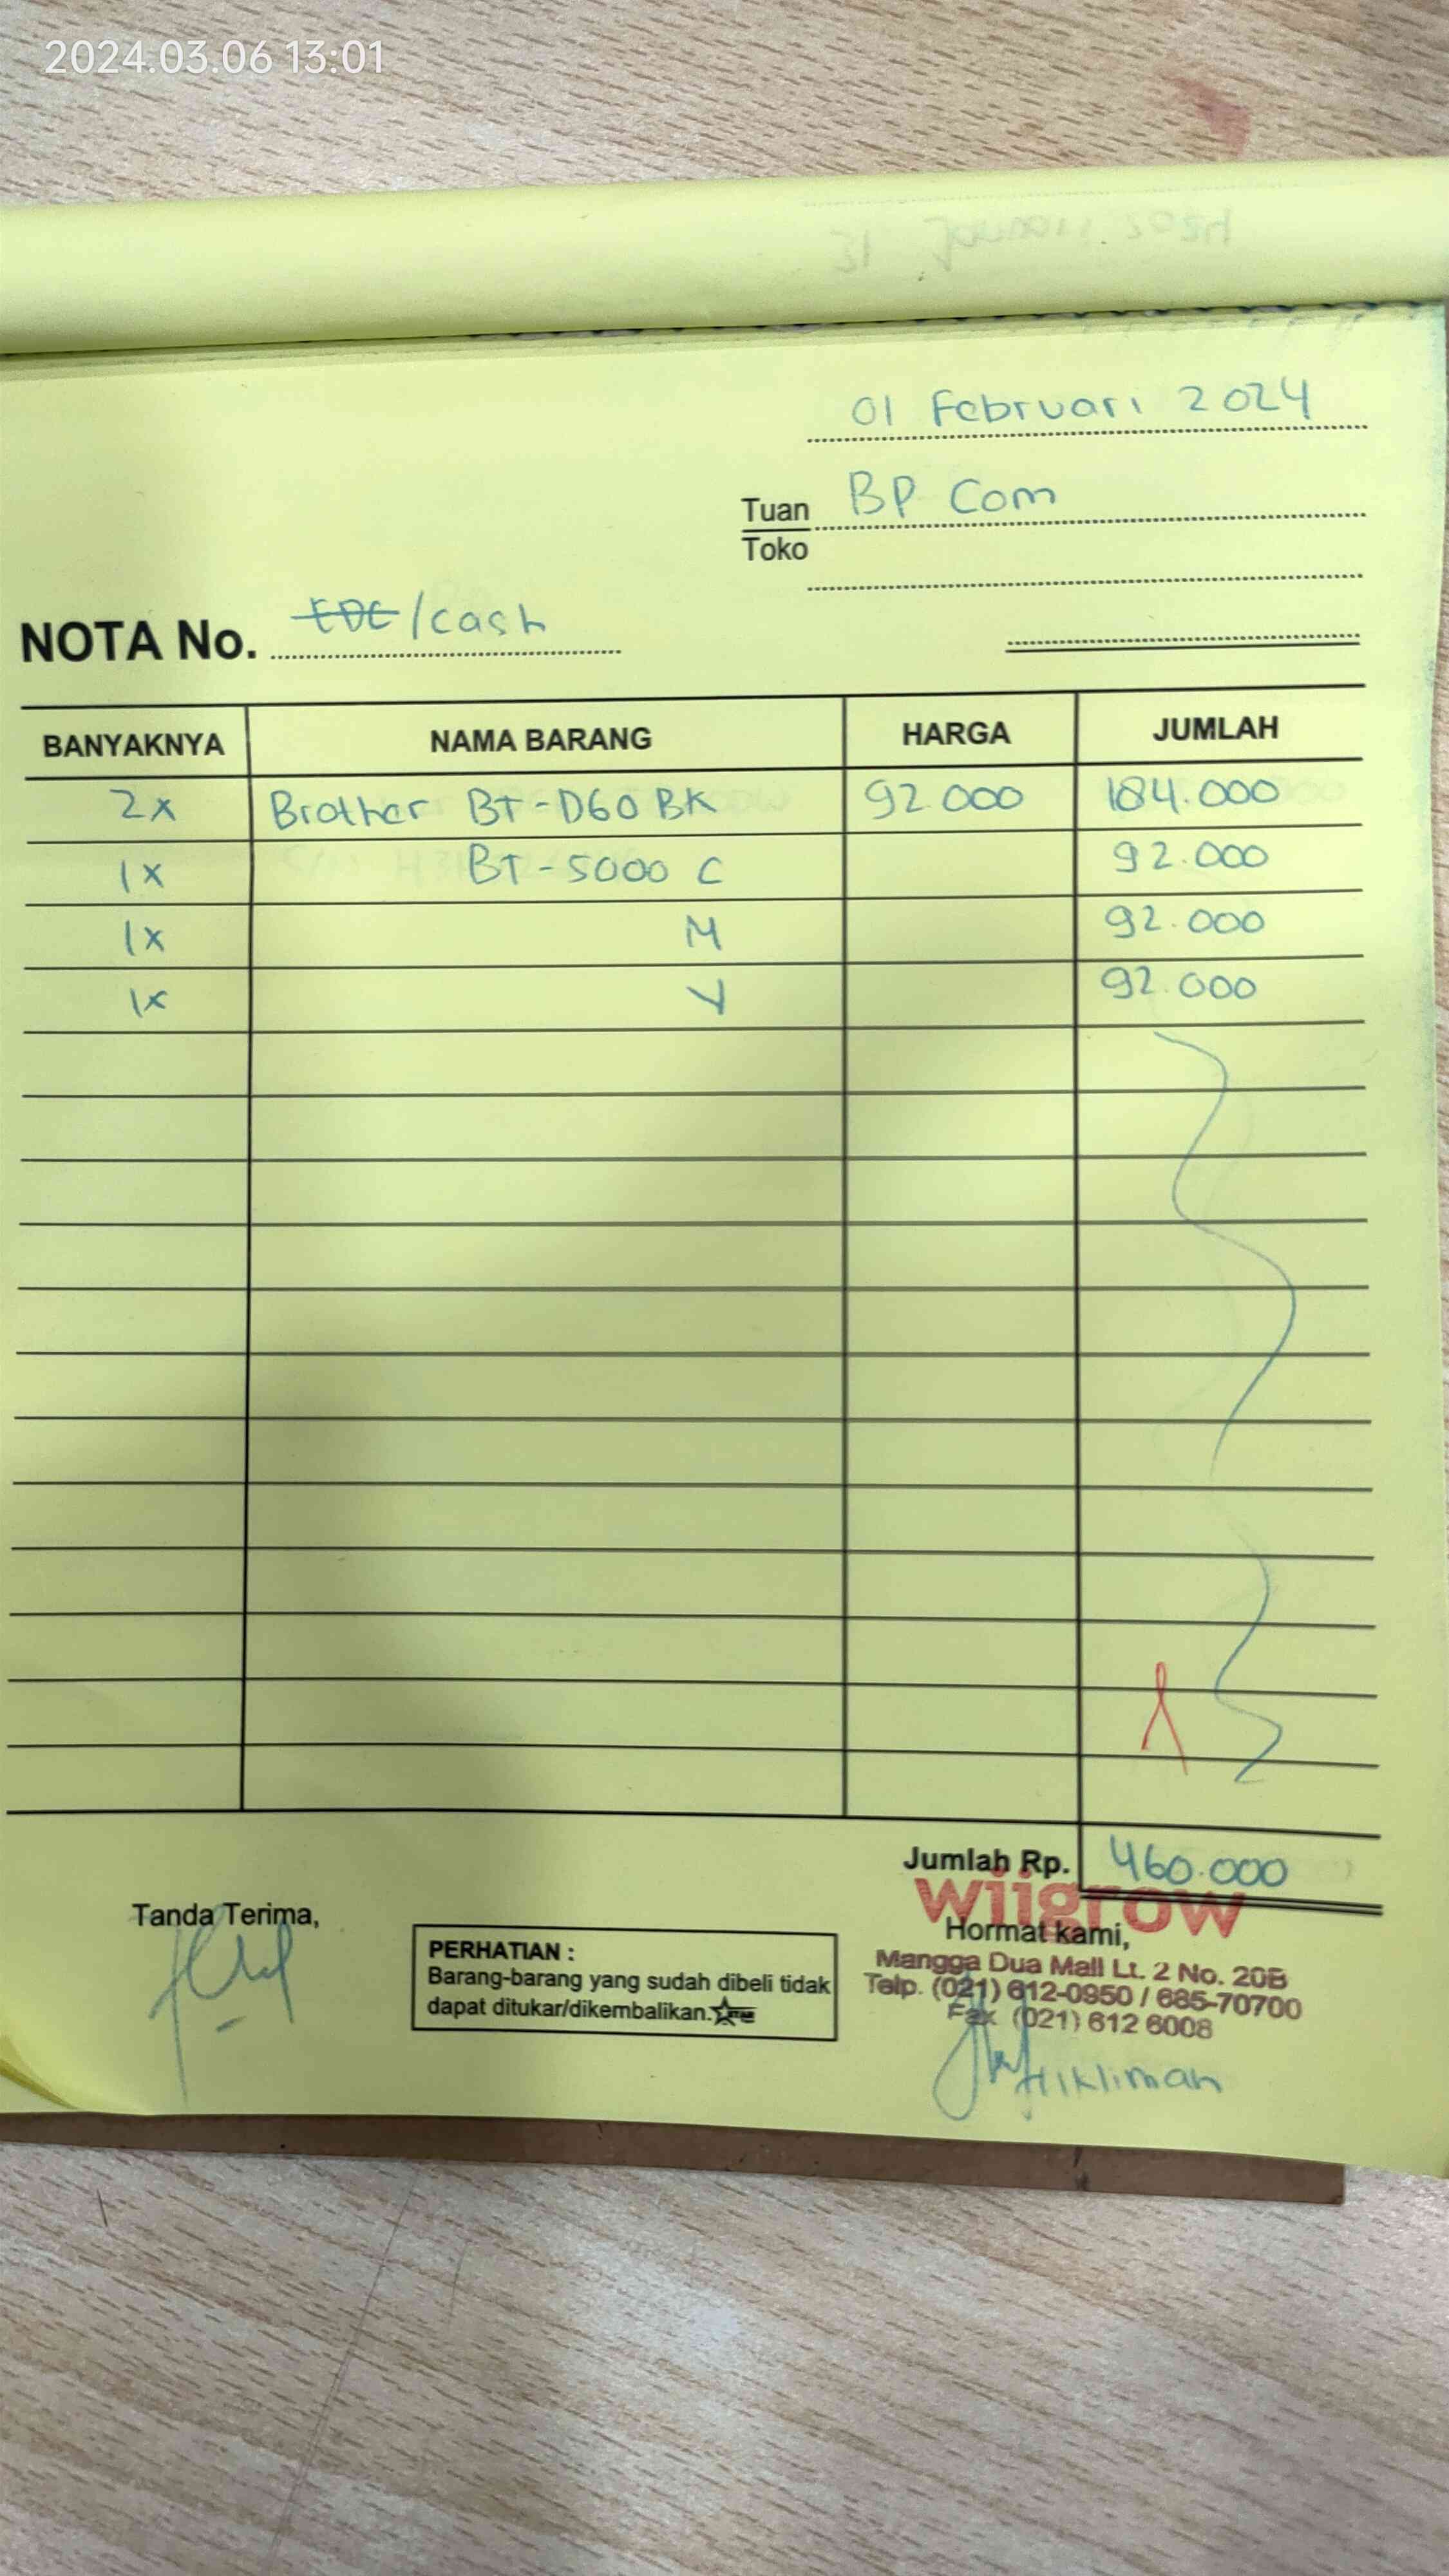 2024.03.06 13:01
31 Januari 2024
01 Februari 2024
Tuan BP Com
Toko
NOTA No. EDC/cash
BANYAKNYA NAMA BARANG HARGA JUMLAH
2x Brother BT-D60 BK 92.000 184.000
1x BT-5000 C 92.000
1x M 92.000
1x Y 92.000
Jumlah Rp. 460.000
wiigrow
Tanda Terima,
Hormat kami,
PERHATIAN :
Barang-barang yang sudah dibeli tidak
dapat ditukar/dikembalikan.
Mangga Dua Mall Lt. 2 No. 20B
Telp. (021) 612-0950 / 685-70700
Fax (021) 612 6008